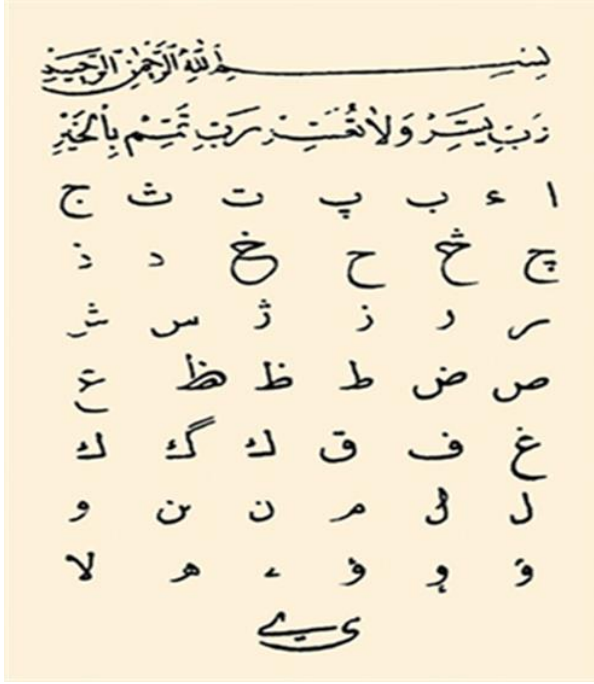 بِسْمِ اللّٰهِ الرَّحْمٰنِ الرَّحِيمِ
رَبِّ يَسِّرْ وَلَا تُعَسِّرْ رَبِّ تَمِّمْ بِالْخَيْرِ
ا ء ب پ ت ث ج
چ څ ح خ د ذ
ر ر ز ژ س ش
ص ض ط ظ ظ ع
غ ف ق ك گ ك
ل م ن ن و
و ؤ ء ه لا
ى ے